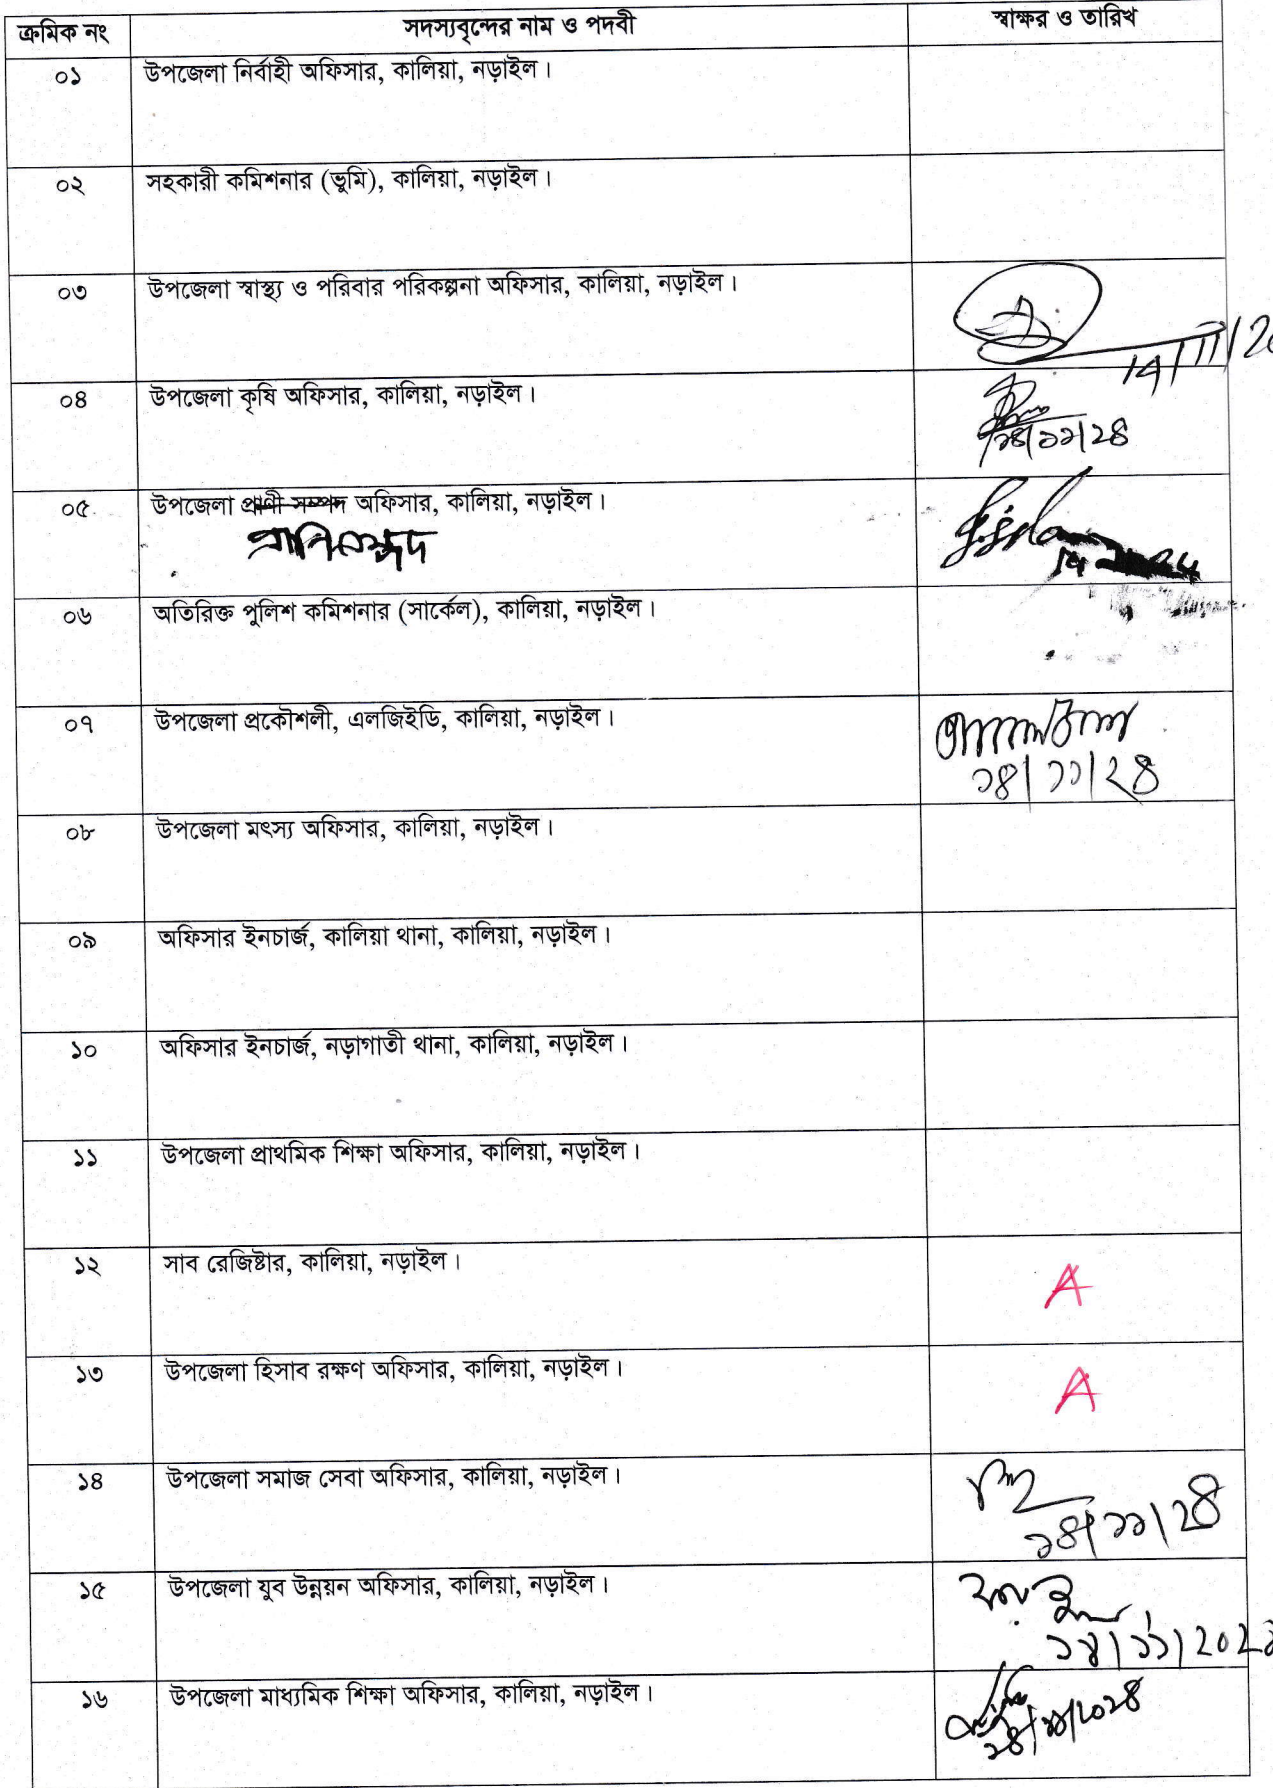 ক্রমিক নং সদস্যবৃন্দের নাম ও পদবী স্বাক্ষর ও তারিখ
০১ উপজেলা নির্বাহী অফিসার, কালিয়া, নড়াইল।
০২ সহকারী কমিশনার (ভূমি), কালিয়া, নড়াইল।
০৩ উপজেলা স্বাস্থ্য ও পরিবার পরিকল্পনা অফিসার, কালিয়া, নড়াইল।
14/11/20
০৪ উপজেলা কৃষি অফিসার, কালিয়া, নড়াইল।
১৪/১১/২৪
০৫ উপজেলা প্রাণী সম্পদ অফিসার, কালিয়া, নড়াইল।
প্রাণিসম্পদ
০৬ অতিরিক্ত পুলিশ কমিশনার (সার্কেল), কালিয়া, নড়াইল।
০৭ উপজেলা প্রকৌশলী, এলজিইডি, কালিয়া, নড়াইল।
১৪/১১/২৪
০৮ উপজেলা মৎস্য অফিসার, কালিয়া, নড়াইল।
০৯ অফিসার ইনচার্জ, কালিয়া থানা, কালিয়া, নড়াইল।
১০ অফিসার ইনচার্জ, নড়াগাতী থানা, কালিয়া, নড়াইল।
১১ উপজেলা প্রাথমিক শিক্ষা অফিসার, কালিয়া, নড়াইল।
১২ সাব রেজিষ্টার, কালিয়া, নড়াইল। A
১৩ উপজেলা হিসাব রক্ষণ অফিসার, কালিয়া, নড়াইল। A
১৪ উপজেলা সমাজ সেবা অফিসার, কালিয়া, নড়াইল।
১৪/১১/২৪
১৫ উপজেলা যুব উন্নয়ন অফিসার, কালিয়া, নড়াইল।
১৪/১১/২০২৪
১৬ উপজেলা মাধ্যমিক শিক্ষা অফিসার, কালিয়া, নড়াইল।
১৪/১১/২০২৪